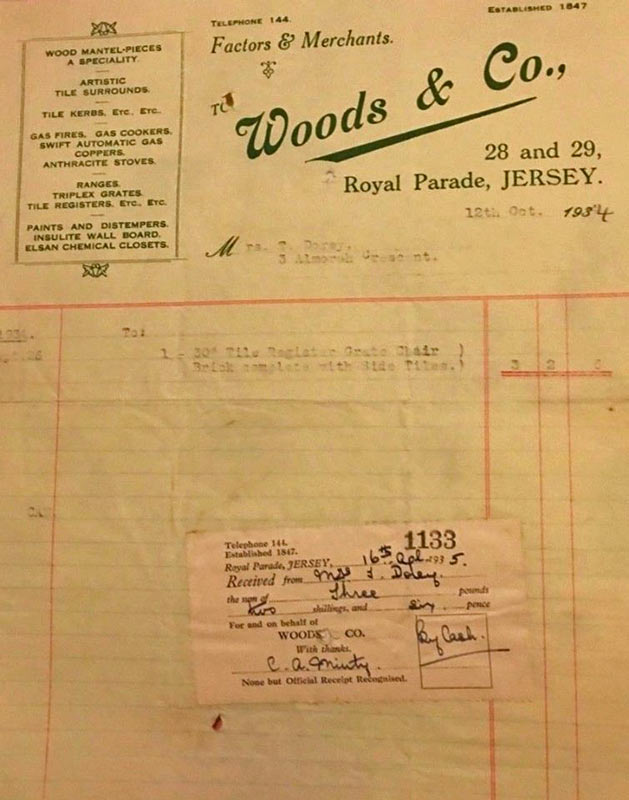 TELEPHONE 144.
ESTABLISHED 1847
Factors & Merchants.
WOOD MANTEL-PIECES
A SPECIALITY.
ARTISTIC
TILE SURROUNDS.
TILE KERBS, ETC., ETC.
GAS FIRES, GAS COOKERS,
SWIFT AUTOMATIC GAS
COPPERS,
ANTHRACITE STOVES.
RANGES,
TRIPLEX GRATES,
TILE REGISTERS, ETC., ETC.
PAINTS AND DISTEMPERS.
INSULITE WALL BOARD.
ELSAN CHEMICAL CLOSETS.
TO
Woods & Co.,
28 and 29,
Royal Parade, JERSEY.
12th Oct. 1934
Mrs. Dorey,
3 Almorah Crescent.
1934.
To:
26
1 - 30" Tile Register Grate Chair )
Brick complete with Side Tiles.)
3 2 6
CA
1133
Telephone 144.
Established 1847.
Royal Parade, JERSEY, 16th Apl. 1935.
Received from Mrs Dorey.
the sum of Three pounds
two shillings, and six pence
For and on behalf of
WOODS & CO.
With thanks.
C. A. Minty.
By Cash.
None but Official Receipt Recognised.